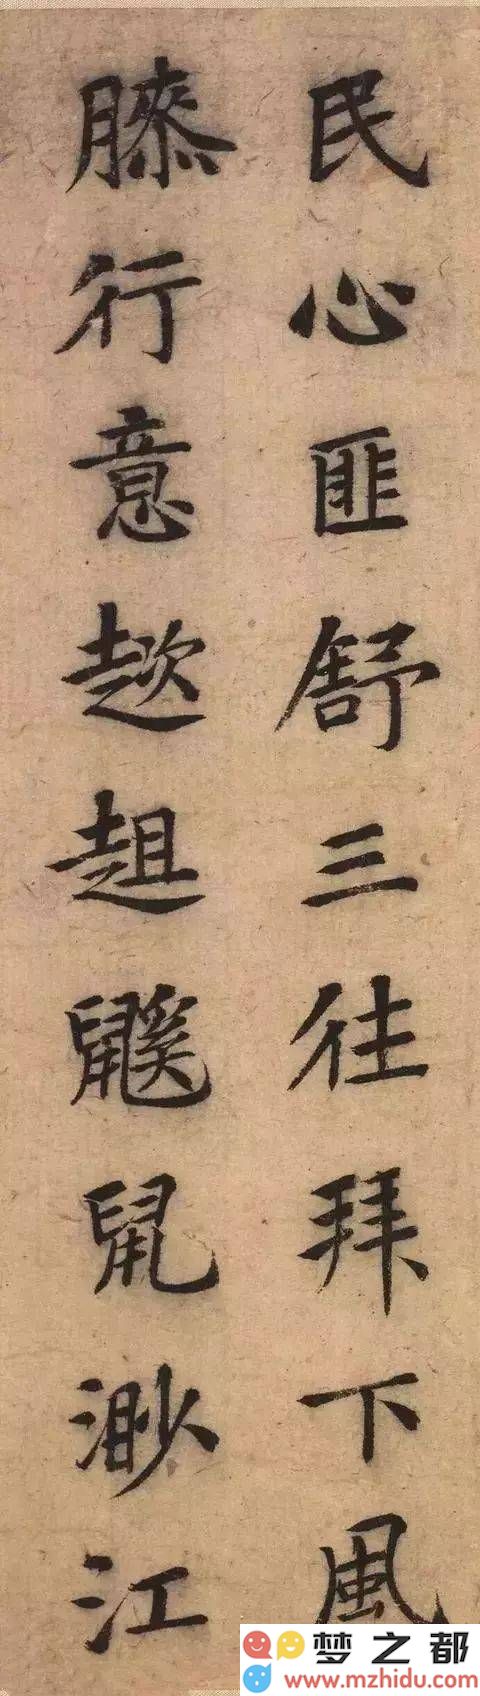 民心匪舒三往拜下風
膝行意趑趄鼷鼠渺江
梦之都
www.mzhidu.com